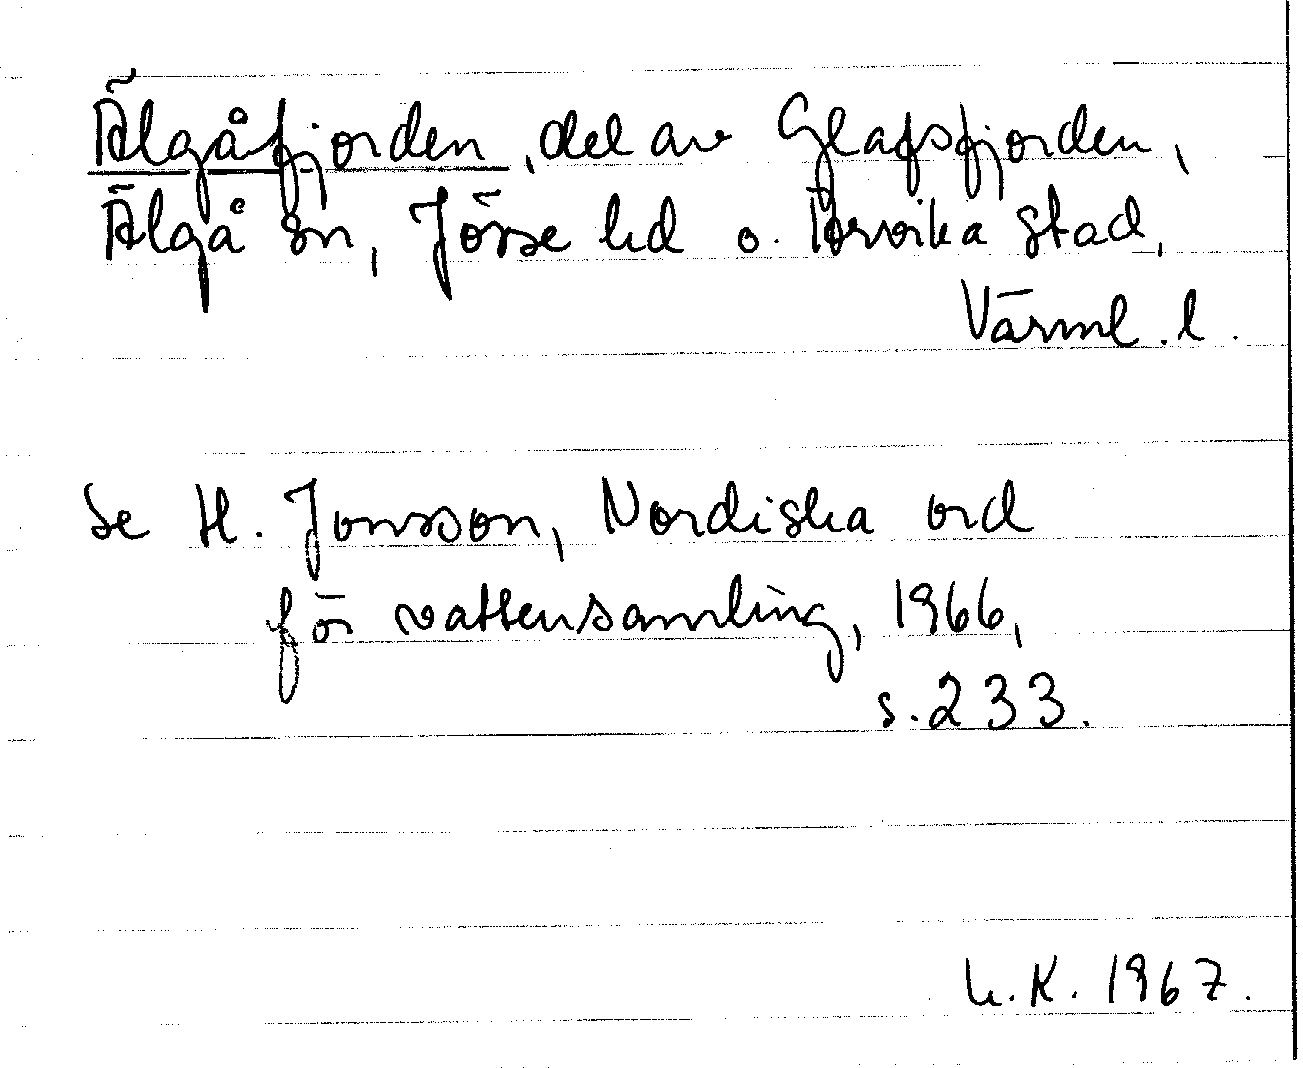 Älgåfjorden, del av Glafsfjorden,
Älgå sn, Jösse hd o. Arvika stad,
Värml. l.
Se H. Jonsson, Nordiska ord
för vattensamling, 1966,
s. 233.
L. K. 1967.